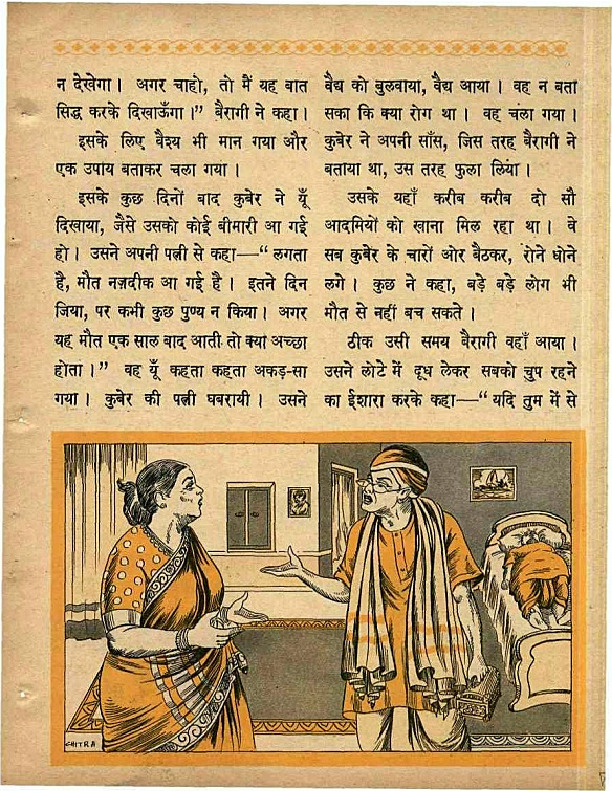 न देखेगा। अगर चाहो, तो मैं यह बात
सिद्ध करके दिखाऊँगा।" बैरागी ने कहा।
इसके लिए वैश्य भी मान गया और
एक उपाय बताकर चला गया।
इसके कुछ दिनों बाद कुबेर ने यूँ
दिखाया, जैसे उसको कोई बीमारी आ गई
हो। उसने अपनी पत्नी से कहा—"लगता
है, मौत नज़दीक आ गई है। इतने दिन
जिया, पर कभी कुछ पुण्य न किया। अगर
यह मौत एक साल बाद आती तो क्या अच्छा
होता।" वह यूँ कहता कहता अकड़-सा
गया। कुबेर की पत्नी घबरायी। उसने
वैद्य को बुलवाया, वैद्य आया। वह न बता
सका कि क्या रोग था। वह चला गया।
कुबेर ने अपनी साँस, जिस तरह बैरागी ने
बताया था, उस तरह फुला लिया।
उसके यहाँ करीब करीब दो सौ
आदमियों को खाना मिल रहा था। वे
सब कुबेर के चारों ओर बैठकर, रोने धोने
लगे। कुछ ने कहा, बड़े बड़े लोग भी
मौत से नहीं बच सकते।
ठीक उसी समय बैरागी वहाँ आया।
उसने लोटे में दूध लेकर सबको चुप रहने
का ईशारा करके कहा—"यदि तुम में से
CHITRA